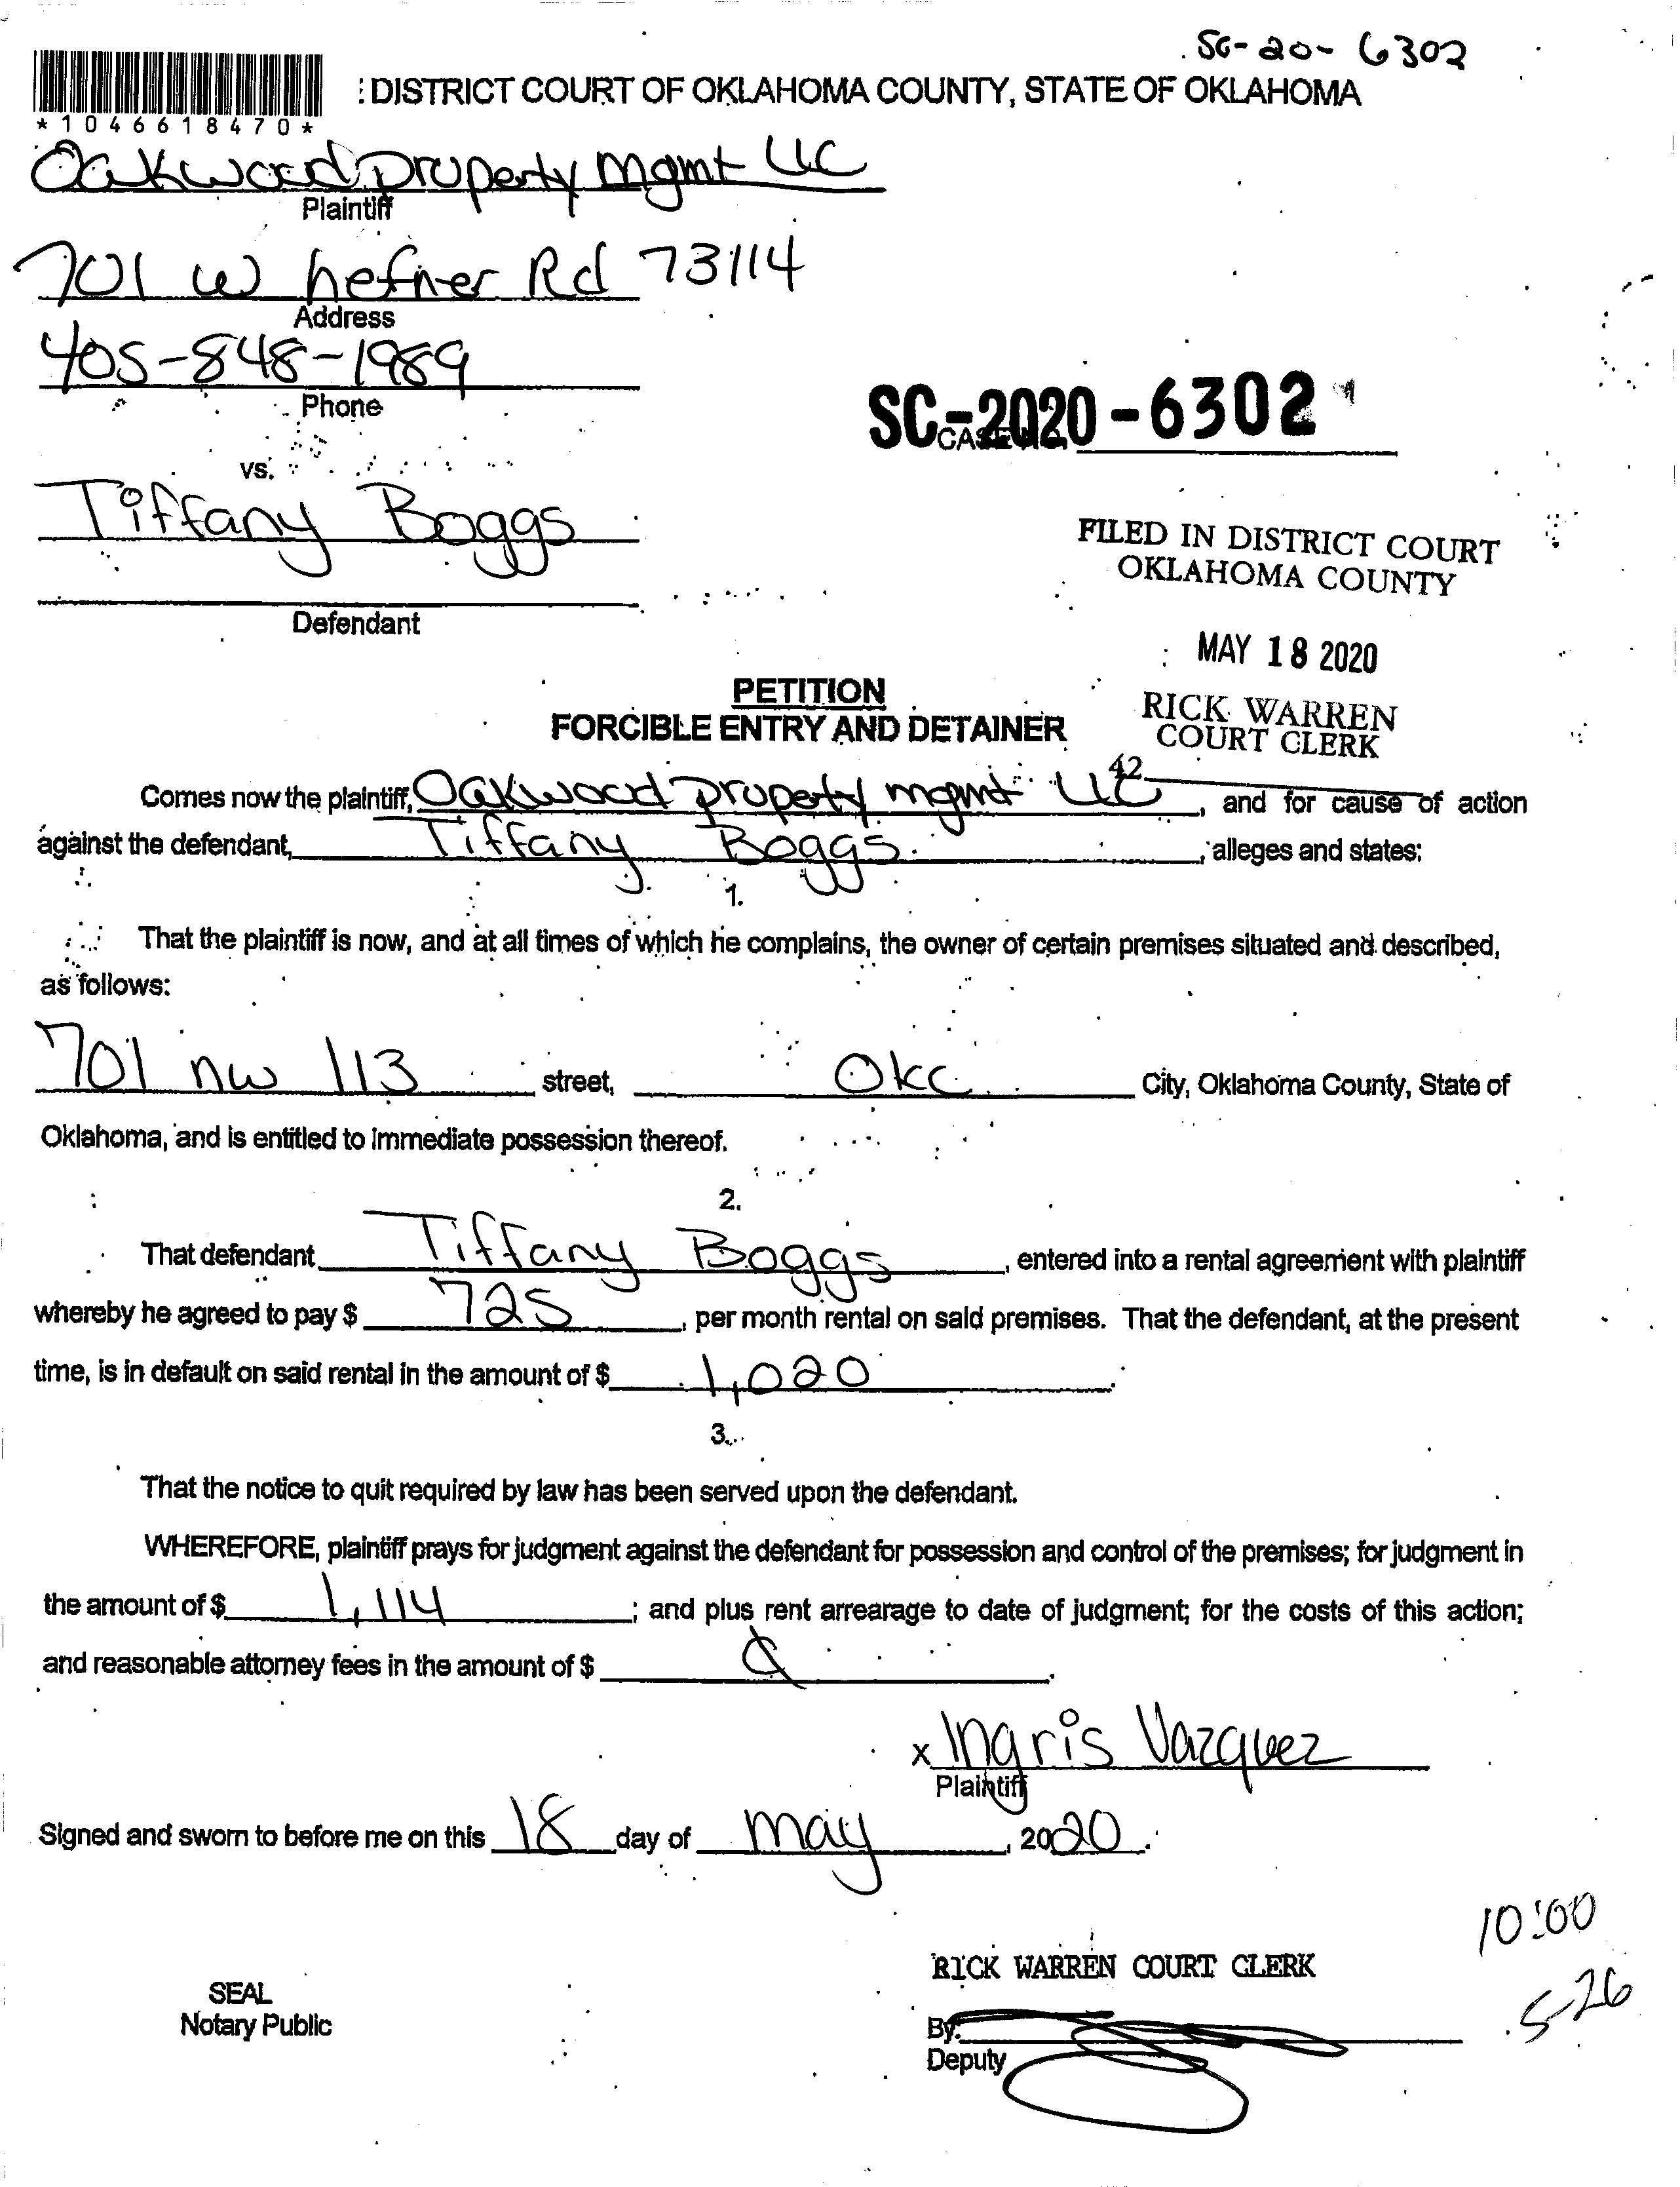 SC-20-6302
: DISTRICT COURT OF OKLAHOMA COUNTY, STATE OF OKLAHOMA
*1046618470*
Oakwood property Mgmt LLC
Plaintiff
701 W hefner Rd 73114
Address
405-848-1989
Phone
SC-2020-6302
CASE NO.
vs.
Tiffany Boggs
FILED IN DISTRICT COURT
OKLAHOMA COUNTY
Defendant
MAY 18 2020
PETITION
RICK WARREN
FORCIBLE ENTRY AND DETAINER
COURT CLERK
42
Comes now the plaintiff, Oakwood property mgmt LLC, and for cause of action
against the defendant, Tiffany Boggs, alleges and states:
1.
That the plaintiff is now, and at all times of which he complains, the owner of certain premises situated and described,
as follows:
701 nw 113 street, OKC City, Oklahoma County, State of
Oklahoma, and is entitled to immediate possession thereof.
2.
That defendant Tiffany Boggs, entered into a rental agreement with plaintiff
whereby he agreed to pay $ 725, per month rental on said premises. That the defendant, at the present
time, is in default on said rental in the amount of $ 1,020.
3.
That the notice to quit required by law has been served upon the defendant.
WHEREFORE, plaintiff prays for judgment against the defendant for possession and control of the premises; for judgment in
the amount of $ 1,114; and plus rent arrearage to date of judgment; for the costs of this action;
and reasonable attorney fees in the amount of $ .
x Ingris Vazquez
Plaintiff
Signed and sworn to before me on this 18 day of may, 2020.
10:00
RICK WARREN COURT CLERK
5-26
SEAL
Notary Public
By:
Deputy